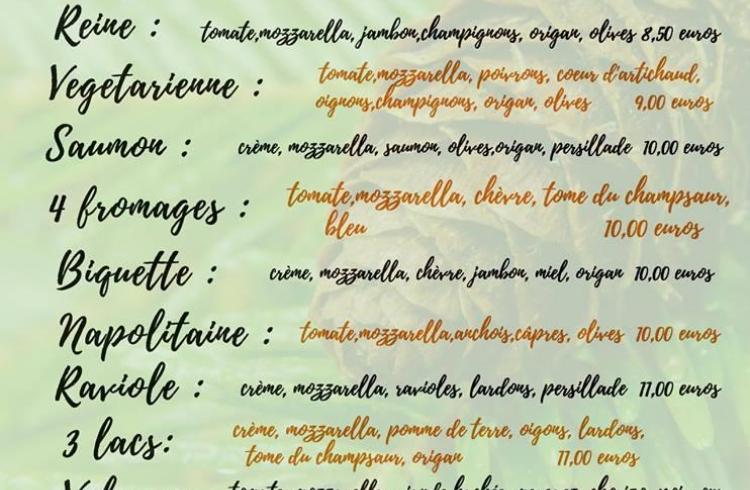 Reine : tomate,mozzarella, jambon,champignons, origan, olives 8,50 euros
Vegetarienne : tomate,mozzarella, poivrons, coeur d'artichaud,
oignons,champignons, origan, olives 9,00 euros
Saumon : crème, mozzarella, saumon, olives,origan, persillade 10,00 euros
4 fromages : tomate,mozzarella, chèvre, tome du champsaur,
bleu 10,00 euros
Biquette : crème, mozzarella, chèvre, jambon, miel, origan 10,00 euros
Napolitaine : tomate,mozzarella,anchois,câpres, olives 10,00 euros
Raviole : crème, mozzarella, ravioles, lardons, persillade 11,00 euros
3 lacs: crème, mozzarella, pomme de terre, oigons, lardons,
tome du champsaur, origan 11,00 euros